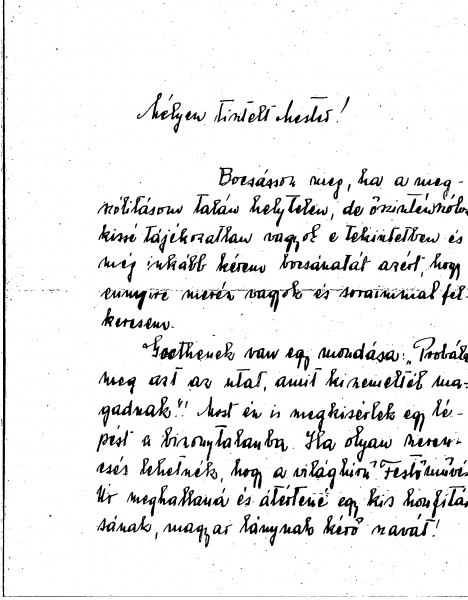 Mélyen tisztelt Mester!
Bocsásson meg, ha a meg-
szólításom talán helytelen, de őszintén szólva
kissé tájékozatlan vagyok e tekintetben és
még inkább kérem bocsánatát azért, hogy
ennyire merész vagyok és soraimmal fel-
keresem.
Goethenek van egy mondása: „Probáld
meg azt az utat, amit kiszemeltél ma-
gadnak"! Most én is megkisérlek egy lé-
pést a bizonytalanba. Ha olyan szeren-
csés lehetnék, hogy a világhirű Festőművész
Úr meghallaná és átértené egy kis honfitár-
sának, magyar lánynak kérő szavát!